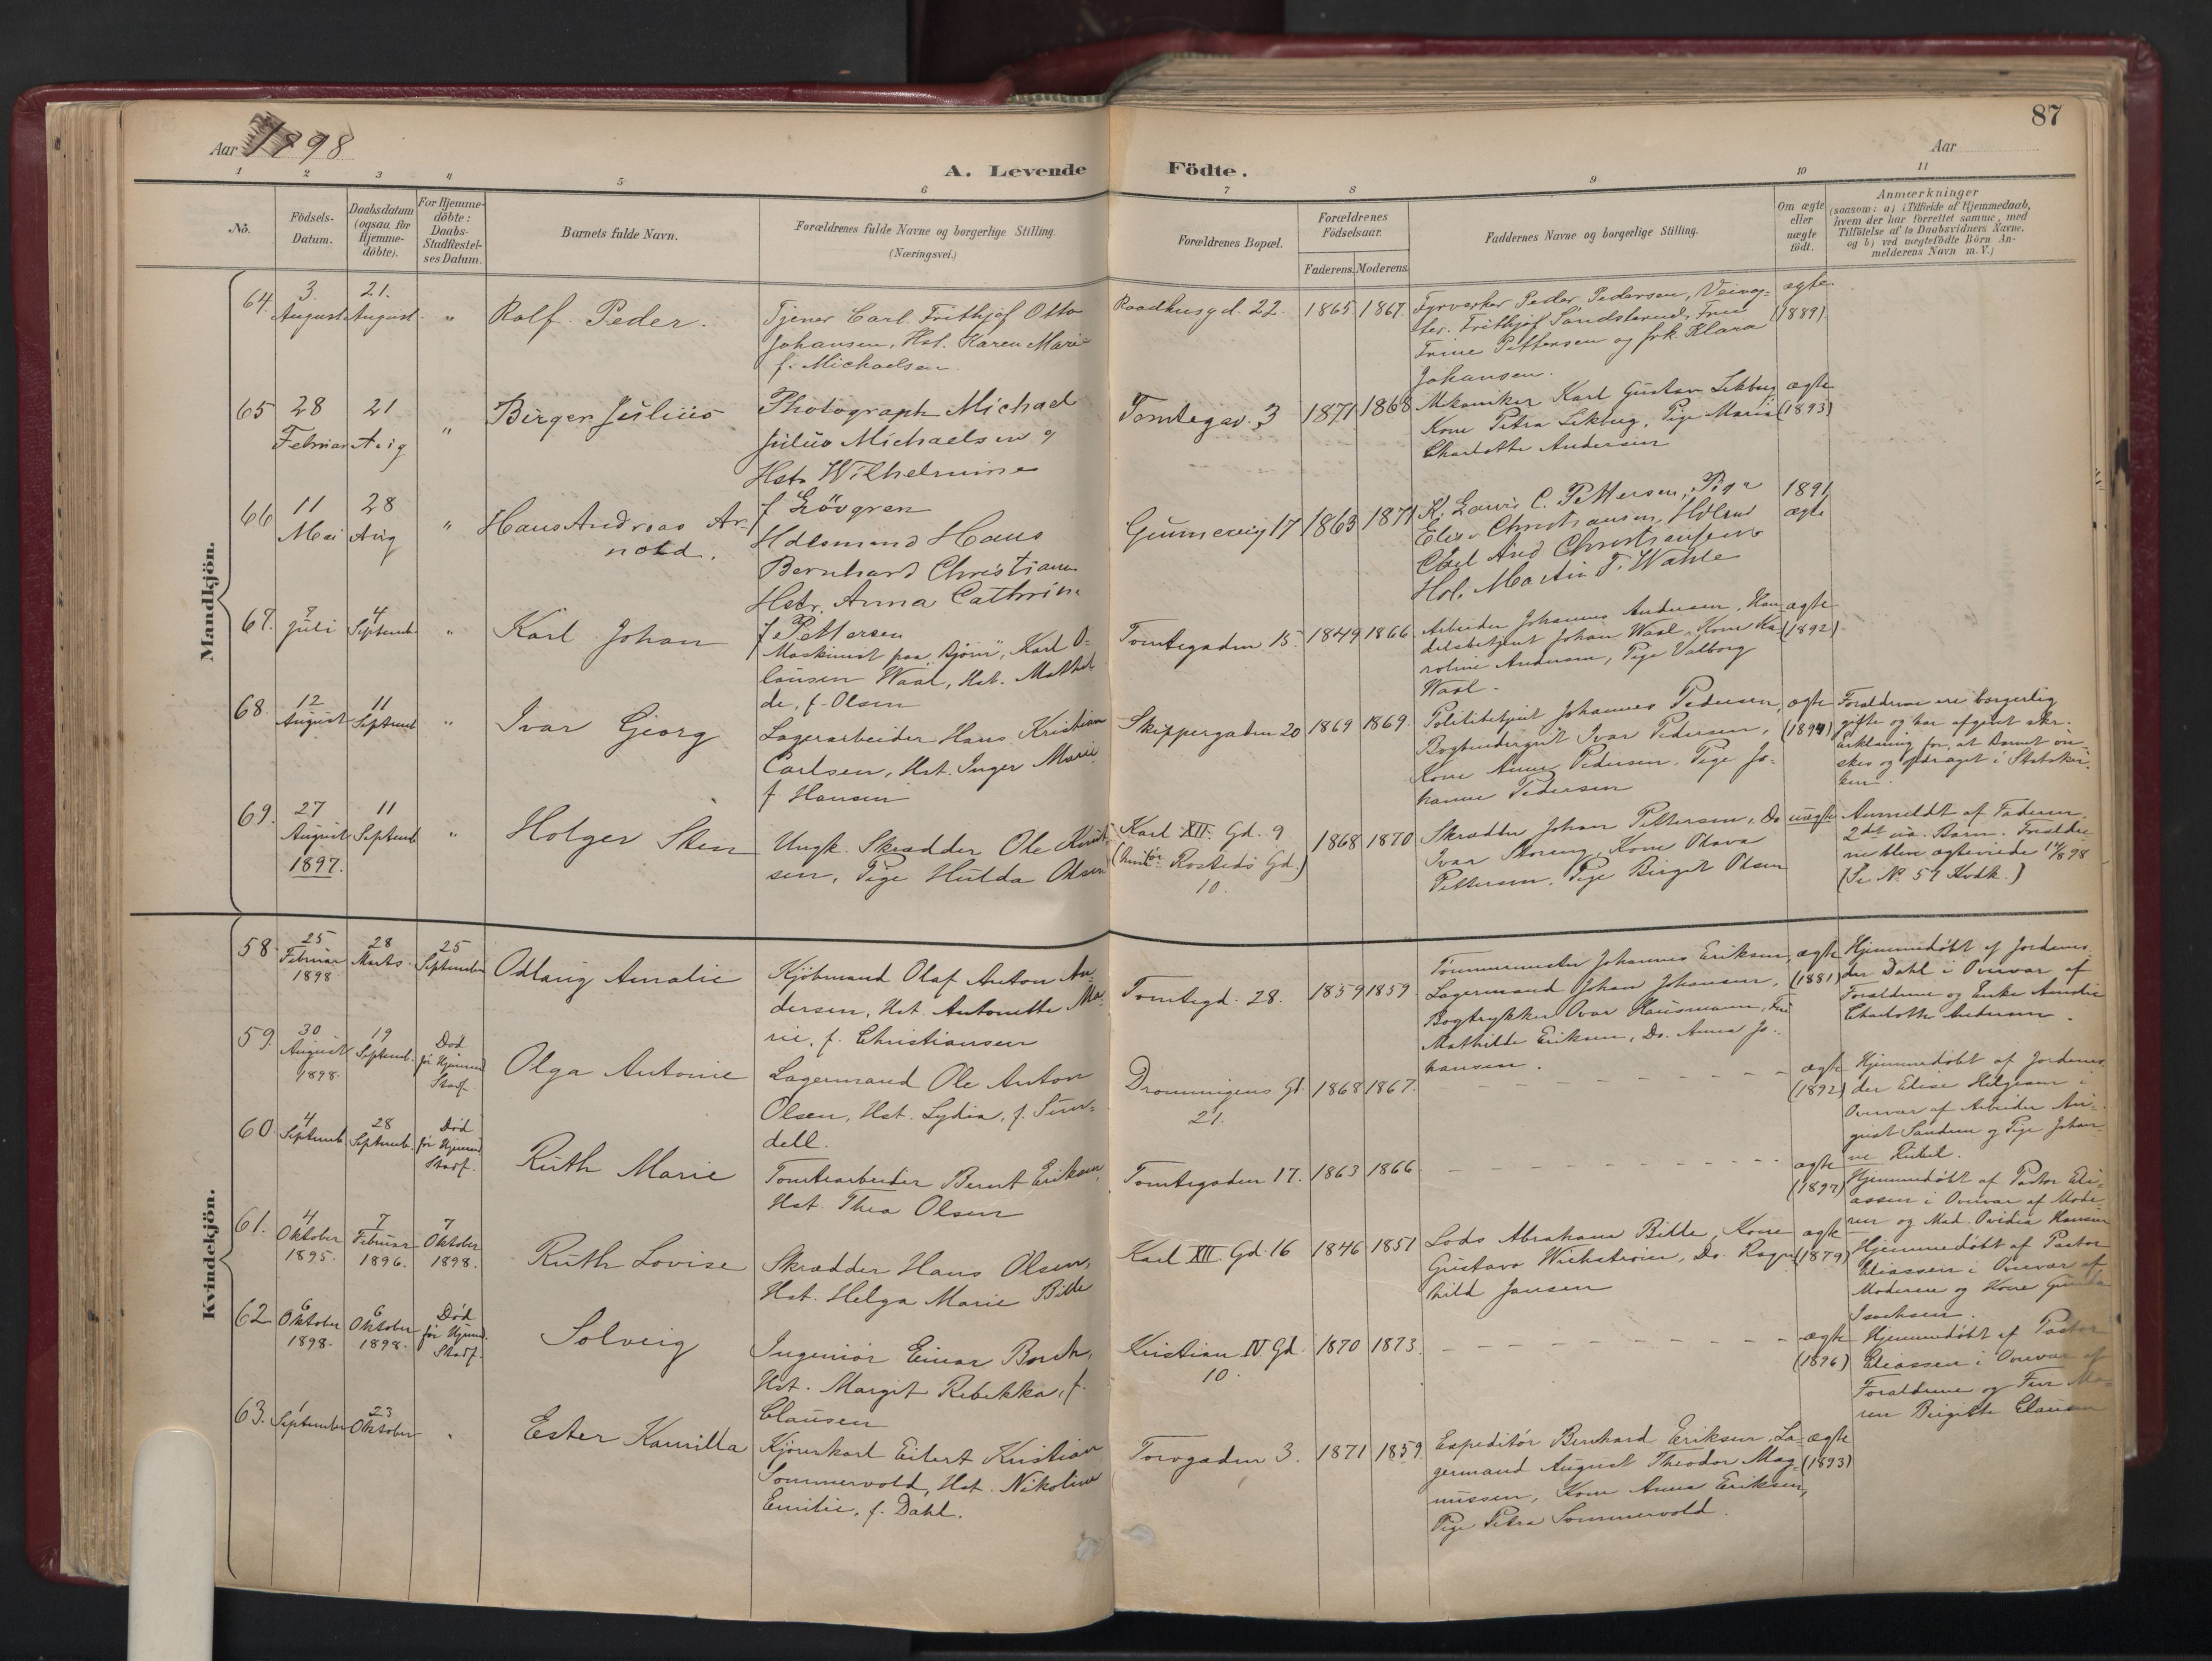 87
Aar 1898
Aar
A. Levende Födte.
1 2 3 4 5 6 7 8 9 10 11
No.
Födsels-
Datum.
Daabsdatum
(ogsaa for
Hjemme-
döbte).
For Hjemme-
döbte:
Daabs-
Stadfæstel-
ses Datum.
Barnets fulde Navn.
Forældrenes fulde Navne og borgerlige Stilling.
(Næringsvei.)
Forældrenes Bopæl.
Forældrenes
Födselsaar.
Faderens. Moderens.
Faddernes Navne og borgerlige Stilling.
Om ægte
eller
uægte
födt.
Anmærkninger
(saasom: a) i Tilfælde af Hjemmedaab,
hvem der har forrettet samme, med
Tilföielse af to Daabsvidners Navne,
og b) ved uægtefödte Börn An-
melderens Navn m. V.)
Mandkjön.
64.
3.
August
21.
August
"
Rolf Peder.
Tjener Carl Frithjof Otto
Johansen, Hst. Karen Marie
f. Michaelsen
Raadhusgd. 22.
1865 1867.
Fyrverker Peder Pedersen,
Frithjof Sandsterud, Frue
Trine Pettersen og frk. Klara
Johansen.
ægte
(1889).
65
28
Februar
21
Aug
"
Birger Julius
Photograph Michael
Julius Michaelsen og
Hstr Wilhelmine
f Lövgren
Tomtegad. 3
1871 1868
Mekaniker Karl Gustav
Kone Petra, Pige Maria
Charlotte Andersen
ægte
(1893)
66
11
Mai
28
Aug
"
Hans Andreas Ar-
nold.
Hdlsmand Hans
Bernhard Christians
Hstr. Anna Cathrine
f Pettersen
17 1863 1871
K. Lovis C. Pettersen, Pige
Elise Christiansen,
And Christiansen
Martin T. Wahle
1891
ægte
67.
9
Juli
4
Septemb.
"
Karl Johan
Maskinist paa "Björn", Karl O-
lausen Waal, Hst. Mathil-
de, f. Olsen
Tomtegaden 15.
1849 1866.
Arbeider Johannes Andersen, Han-
delsbetjent Johan Waal, Kone Ka-
roline Andersen, Pige Valborg
Waal.
ægte
(1892).
68.
12
August
11
Septemb
"
Ivar Georg
Lagerarbeider Hans Kristian
Carlsen, Hst. Inger Marie
f. Hansen
Skippergaden 20
1869 1869.
Politibetjent Johannes Pedersen,
Bogbindersvt Ivar Pedersen,
Kone Anne Pedersen, Pige Jo-
hanne Pedersen
ægte
(1894)
Forældrene ere borgerlig
gifte og har afgivet skr.
Erklæring for, at Barnet ön-
skes opdraget i Statskir-
ken.
69.
27
August
1897.
11
Septemb
"
Holger Sten
Ungk. Skrædder Ole Knut-
sen, Pige Hulda Olsen
Karl XII. Gd. 9
( Rosteds Gd.)
10.
1868 1870
Skrædder Johan Pettersen, Do
Ivar Storeng, Kone Olava
Pettersen, Pige Birgit Olsen
uægte
Anmeldt af Faderen.
2det uæ. Barn. Forældre-
ne bleve ægteviede 14/8 98
(Se No 57 Kvdk.)
Kvindekjön.
58.
25
Februar
1898
28
Marts.
25
September
Odlaug Amalie
Kjöbmand Olaf Anton An-
dersen, Hst. Antonette Ma-
rie, f. Christiansen
Tomtegd. 28.
1859 1859.
Tömmermester Johannes Eriksen,
Lagermand Johan Johansen,
Bogtrykker Ovar Hausmann, Fru
Mathilde Eriksen, Do. Anna Jo-
hansen.
ægte
(1881)
Hjemmedöbt af Jordemo-
der Dahl i Overvær af
Forældrene og Enke Amalie
Charlotte Andersen.
59.
30
August
1898.
19
Septemb.
Död
för Hjemmed
Stadf.
Olga Antonie
Lagermand Ole Anton
Olsen, Hst. Lydia, f. Sun-
dell.
Dronningens Gd.
21.
1868 1867.
ægte
(1892)
Hjemmedöbt af Jordemo-
der Elise Helgesen i
Overvær af Arbeider Au-
gust Sandum og Pige Johan-
ne
60.
4
Septemb.
28
Septemb.
Död
för Hjemmed
Stadf.
Ruth Marie
Tomtearbeider Bernt Eriksen,
Hst. Thea Olsen
Tomtegaden 17.
1863 1866
ægte
(1897)
Hjemmedöbt af Pastor Eli-
assen i Overvær af Mode-
ren og Mad. Ovidia Hansen
61.
4
Oktober
1895.
7
Februar
1896.
7
Oktober
1898.
Ruth Lovise
Skrædder Hans Olsen,
Hst. Helga Marie Bille
Karl XII. Gd. 16
1846 1851
Lods Abraham Bille, Kone
Gustava Wickström, Do. Ragn-
hild Jansen
ægte
(1879)
Hjemmedöbt af Pastor
Eliassen i Overvær af
Moderen og Kone Gunda
Isachsen.
62.
6
Oktober
1898.
6
Oktober
1898.
Död
för Hjemmed.
Stadf.
Solveig
Ingeniör Einar Borch,
Hst. Margit Rebekka, f.
Clausen
Kristian IV. Gd.
10.
1870 1873.
ægte
(1896)
Hjemmedöbt af Pastor
Eliassen i Overvær af
Forældrene og Fru Ma-
ren Birgitte Clausen
63.
1
September
23
Oktober
"
Ester Kamilla
Kjörerkarl Eilert Kristian
Sommervold, Hst. Nikoline
Emilie, f. Dahl.
Torvgaden 3.
1871 1859.
Expeditör Bernhard Eriksen, La-
germand August Theodor Mag-
nussen, Kone Anna Eriksen,
Pige Petra Sommervold.
ægte
(1893)